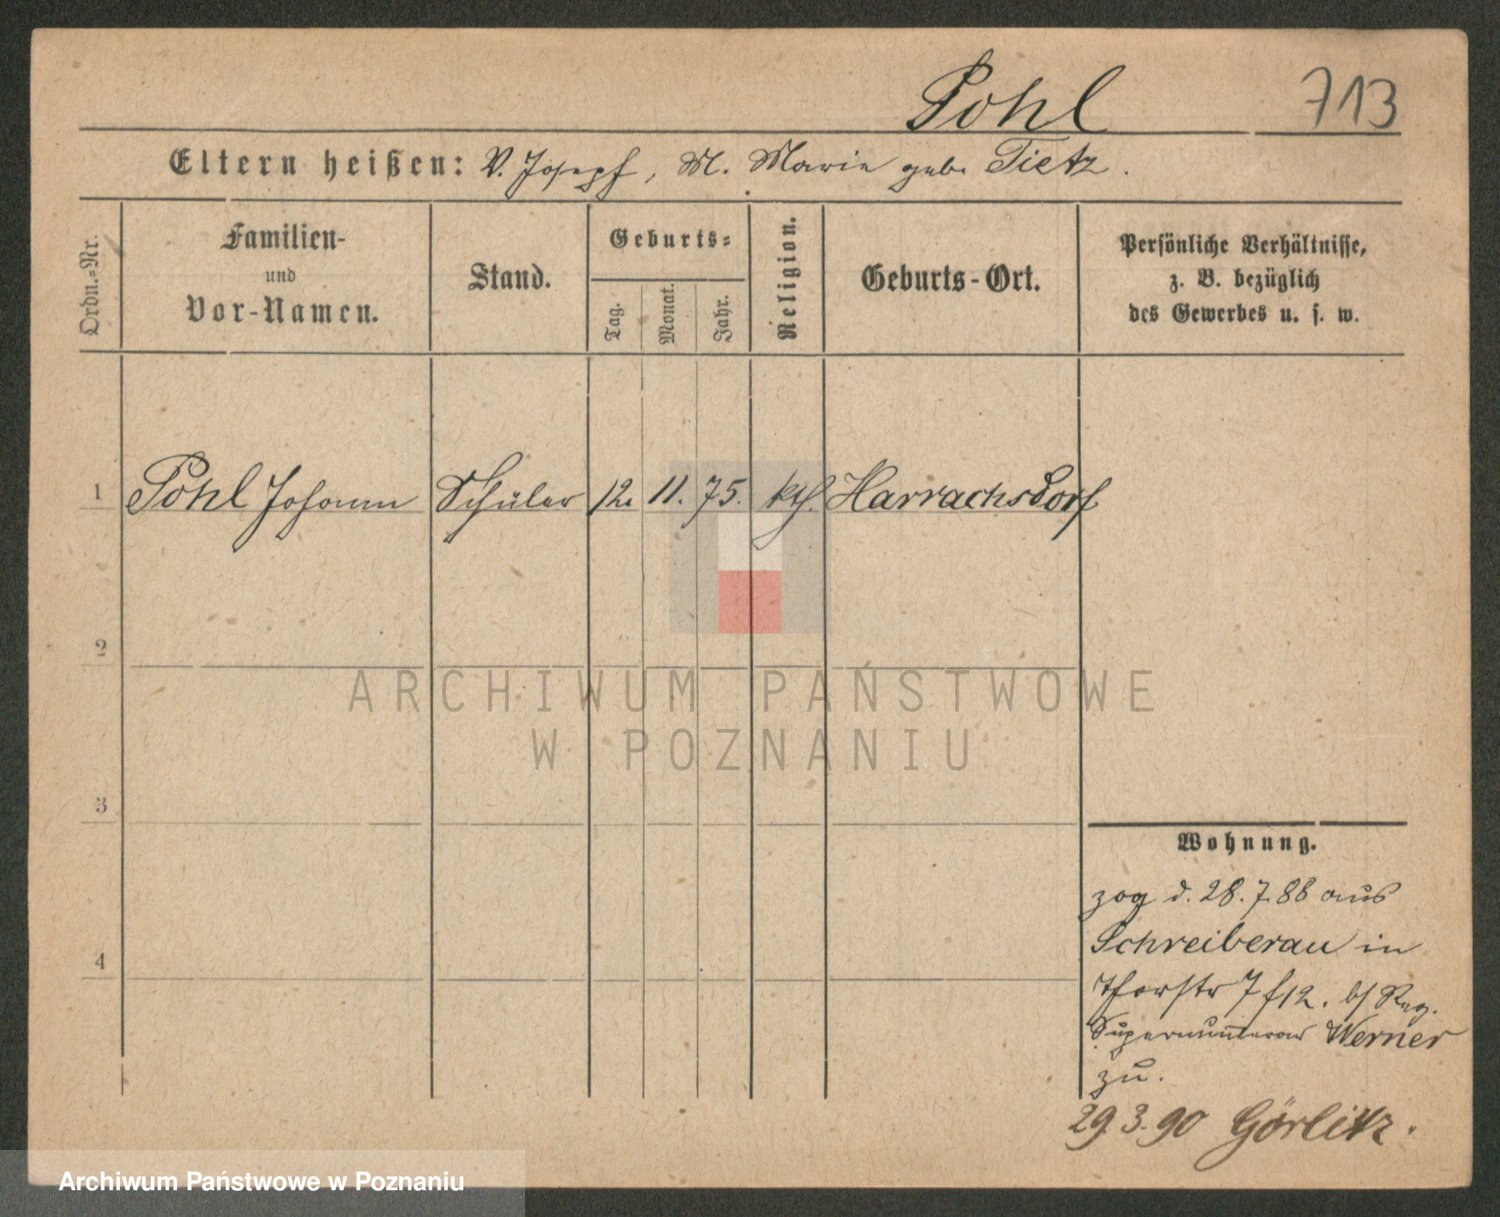 Pohl 713
Eltern heißen: V. Joseph, M. Marie geb. Tietz.
Ordn.-Nr.
Familien-
und
Vor-Namen.
Stand.
Geburts-
Tag.
Monat.
Jahr.
Religion.
Geburts-Ort.
Persönliche Verhältnisse,
z. B. bezüglich
des Gewerbes u. s. w.
1 Pohl Johann Schüler 12. 11. 75. kth. Harrachsdorf
2
ARCHIWUM PAŃSTWOWE
W POZNANIU
3
Wohnung.
zog d. 28.7.88 aus
Schreiberau in
4
12. b/ Reg.
Supernumerar Werner
zu.
29.3.90 Görlitz.
Archiwum Państwowe w Poznaniu